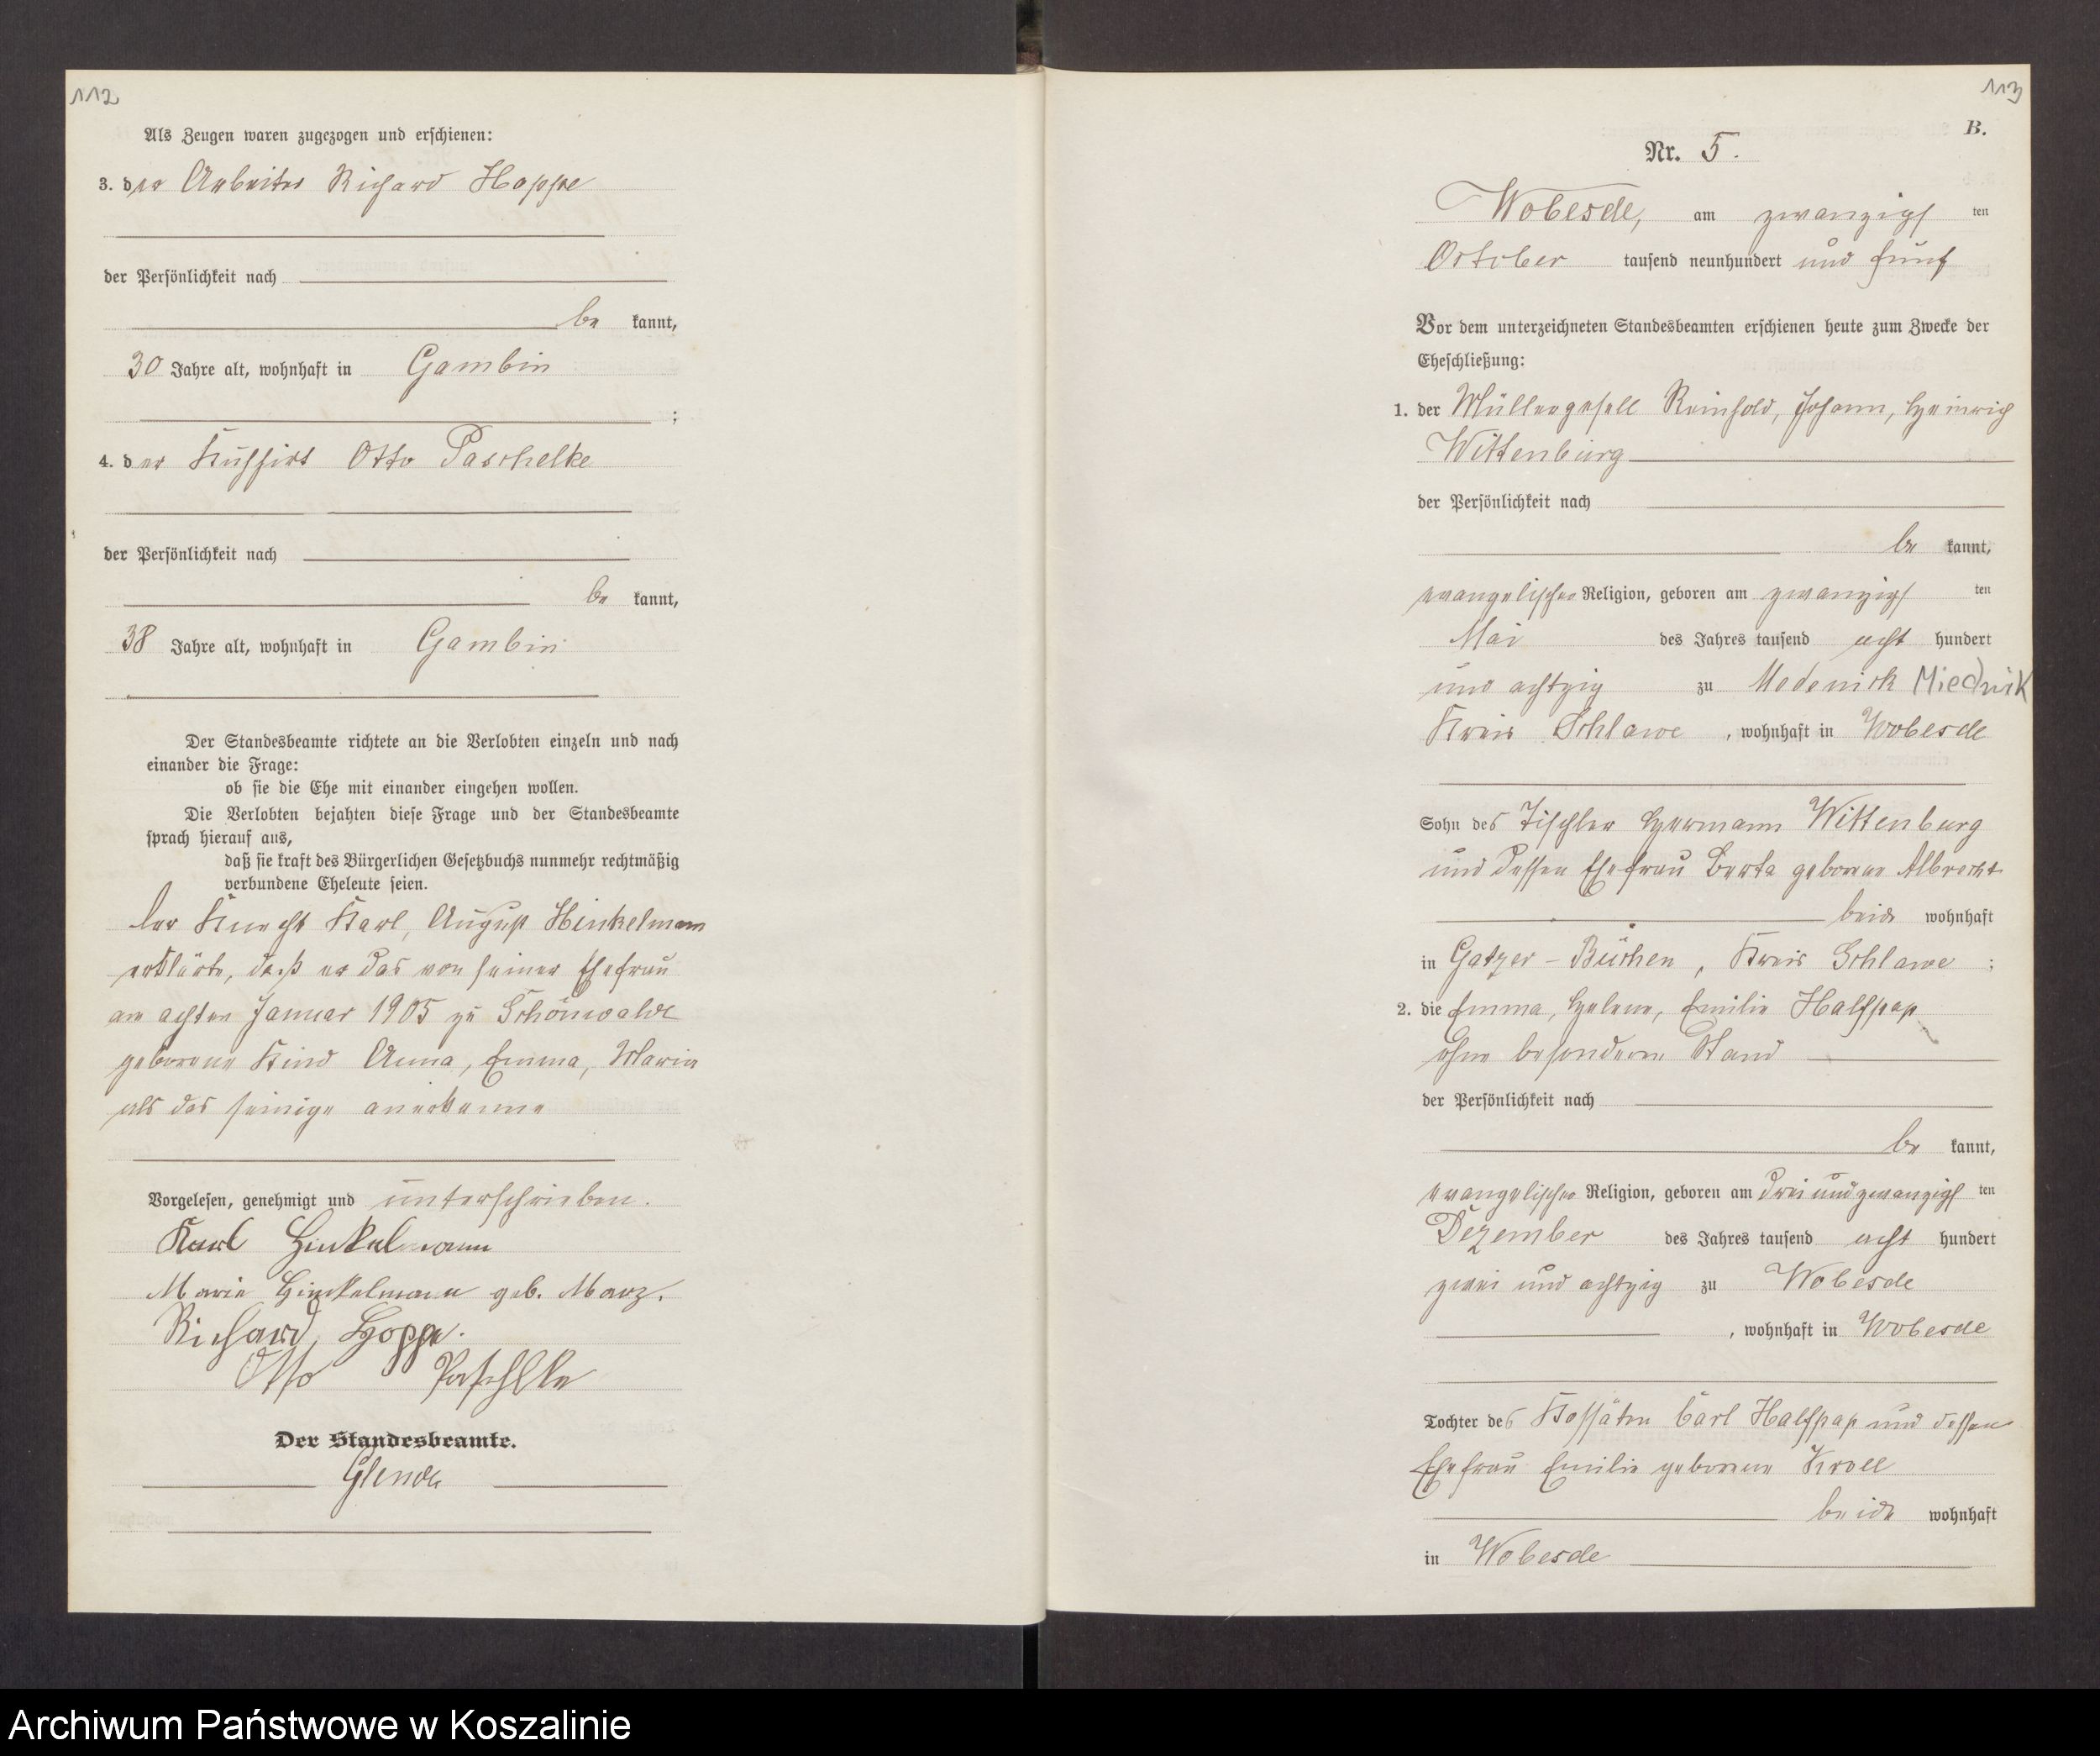 112
Als Zeugen waren zugezogen und erschienen:
3. der Arbeiter Richard Hoppe
der Persönlichkeit nach
be kannt,
30 Jahre alt, wohnhaft in Gambin
;
4. der Kuhhirt Otto Paschelke
der Persönlichkeit nach
be kannt,
38 Jahre alt, wohnhaft in Gambin
Der Standesbeamte richtete an die Verlobten einzeln und nach
einander die Frage:
ob sie die Ehe mit einander eingehen wollen.
Die Verlobten bejahten diese Frage und der Standesbeamte
sprach hierauf aus,
daß sie kraft des Bürgerlichen Gesetzbuchs nunmehr rechtmäßig
verbundene Eheleute seien.
Der Knecht Karl, August Hinkelmann
erklärte, daß er das von seiner Ehefrau
am achten Januar 1905 zu Schönwalde
geborene Kind Anna, Emma, Maria
als das seinige anerkenne
Vorgelesen, genehmigt und unterschrieben.
Karl Hinkelmann
Marie Hinkelmann geb. Marz.
Richard Hoppe.
Otto Paschlke
Der Standesbeamte.
113
B.
Nr. 5.
Wobesde, am zwanzigs ten
October tausend neunhundert und fünf
Vor dem unterzeichneten Standesbeamten erschienen heute zum Zwecke der
Eheschließung:
1. der Müllergesell Reinhold, Johann, Heinrich
Wittenburg
der Persönlichkeit nach
be kannt,
evangelischer Religion, geboren am zwanzigs ten
Mai des Jahres tausend acht hundert
und achtzig zu Medenick Miednik
Kreis Schlawe, wohnhaft in Wobesde
Sohn des Tischler Hermann Wittenburg
und dessen Ehefrau Berta geborene Albrecht
beide wohnhaft
in Gatzer-Büchen, Kreis Schlawe;
2. die Emma, Helene, Emilie Halfpap
ohne besondern Stand
der Persönlichkeit nach
be kannt,
evangelischer Religion, geboren am dreiundzwanzigs ten
Dezember des Jahres tausend acht hundert
zwei und achtzig zu Wobesde
, wohnhaft in Wobesde
Tochter des Kossäten Carl Halfpap und dessen
Ehefrau Emilie geborene Kroll
beide wohnhaft
in Wobesde
Archiwum Państwowe w Koszalinie